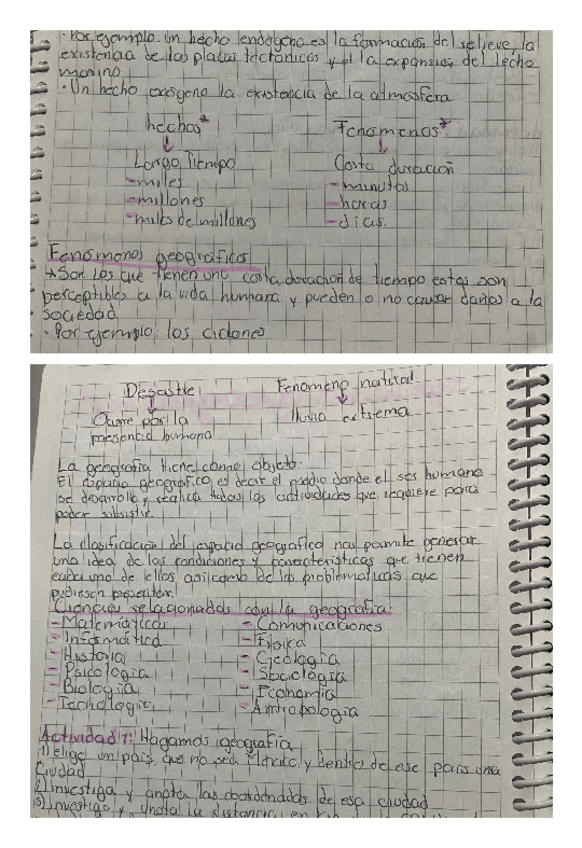 · Por ejemplo: un hecho endógeno es la formación del relieve, la
existencia de las placas tectónicas y el la expansión del lecho
marino
· Un hecho exógeno la existencia de la atmósfera
hechos* Fenomenos*
Largo Tiempo Corta duración
- miles - minutos
- millones - horas
- miles de millones - días.
Fenómenos geográficos
* Son los que tienen una corta duración de tiempo estos son
perceptibles a la vida humana y pueden o no causar daños a la
sociedad.
· Por ejemplo: los ciclones
Desastre Fenomeno natural
Ocurre por la lluvia extrema
presencia humana
La geografía tiene como objeto:
El espacio geográfico es decir el medio donde el ser humano
se desarrolla y realiza todas las actividades que requiere para
poder subsistir.
La clasificación del espacio geográfico nos permite generar
una idea de las condiciones y características que tienen
cada uno de ellos así como de las problematicas que
pudiesen presentar.
Ciencias relacionadas con la geografía:
- Matemáticas - Comunicaciones
- Informática - Física
- Historia - Geología
- Psicología - Sociología
- Biología - Economía
- Tecnologic - Antropología
Actividad 1: Hagamos geografía
1) elige un país, que no sea México y dentro de ese país una
Ciudad
2) Investiga y anota las coordenadas de esa ciudad
3) Investiga y anota la distancia en